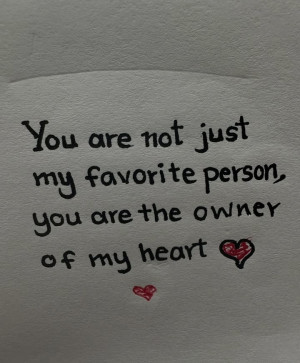 You are not just
my favorite person,
you are the owner
of my heart